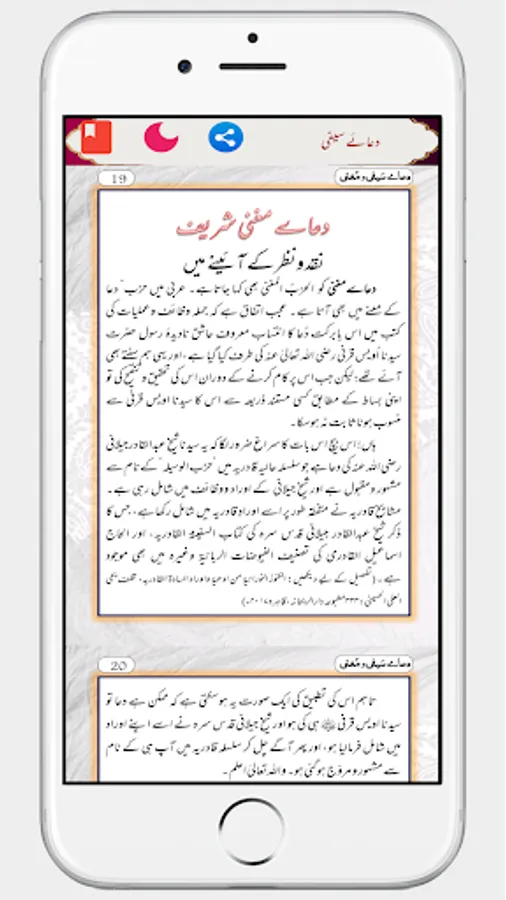 دعائے سیفی
19
دعاے سیفی و مغنی
دعاے مغنی شریف
نقد و نظر کے آئینے میں
دعاے مغنی کو الحزبُ المُغنی بھی کہا جاتا ہے۔ عربی میں حزب ”دعا
کے معنے میں بھی آتا ہے۔ عجب اتفاق ہے کہ جملہ وظائف و عملیات کی
کتب میں اس بابرکت دُعا کا انتساب معروف عاشق نادیدۂ رسول حضرت
سیدنا اویس قرنی رضی اللہ تعالیٰ عنہ کی طرف کیا گیا ہے، اور یہی ہم سنتے بھی
آئے تھے؛ لیکن جب اس پر کام کرنے کے دوران اس کی تحقیق و تنقیح کی تو
اپنی بساط کے مطابق کسی مستند ذریعہ سے اس کا سیدنا اویس قرنی سے
منسوب ہونا ثابت نہ ہوسکا۔
ہاں! اس بیچ اس بات کا سراغ ضرور لگا کہ یہ سیدنا شیخ عبدالقادر جیلانی
رضی اللہ عنہ کی دعا ہے جو سلسلہ عالیہ قادریہ میں ”حزب الوسیلہ“ کے نام سے
مشہور و مقبول ہے اور شیخ جیلانی کے اوراد و وظائف میں شامل رہی ہے۔
مشایخ قادریہ نے متفقہ طور پر اسے اورادِ قادریہ میں شامل رکھا ہے، جس کا
ذکر شیخ عبدالقادر جیلانی قدس سرہ کی کتاب السفینۃ القادریہ، اور الحاج
اسماعیل القادری کی تصنیف الفیوضات الربانیۃ وغیرہ میں بھی موجود
ہے۔ (تفصیل کے لیے دیکھیں: من ادعیۃ واوراد السادۃ القادریہ،
العلی الحسینی: ۳۳۳ مطبوعہ قاہرہ ۲۰۱۷ء)
20
دعاے سیفی و مغنی
تاہم اس کی تطبیق کی ایک صورت یہ ہوسکتی ہے کہ ممکن ہے دعا تو
سیدنا اویس قرنی ہی کی ہو اور شیخ جیلانی قدس سرہ نے اسے اپنے اوراد
میں شامل فرمالیا ہو، اور پھر آگے چل کر سلسلہ قادریہ میں آپ ہی کے نام
سے مشہور و مروّج ہوگئی ہو۔ واللہ تعالیٰ اعلم۔